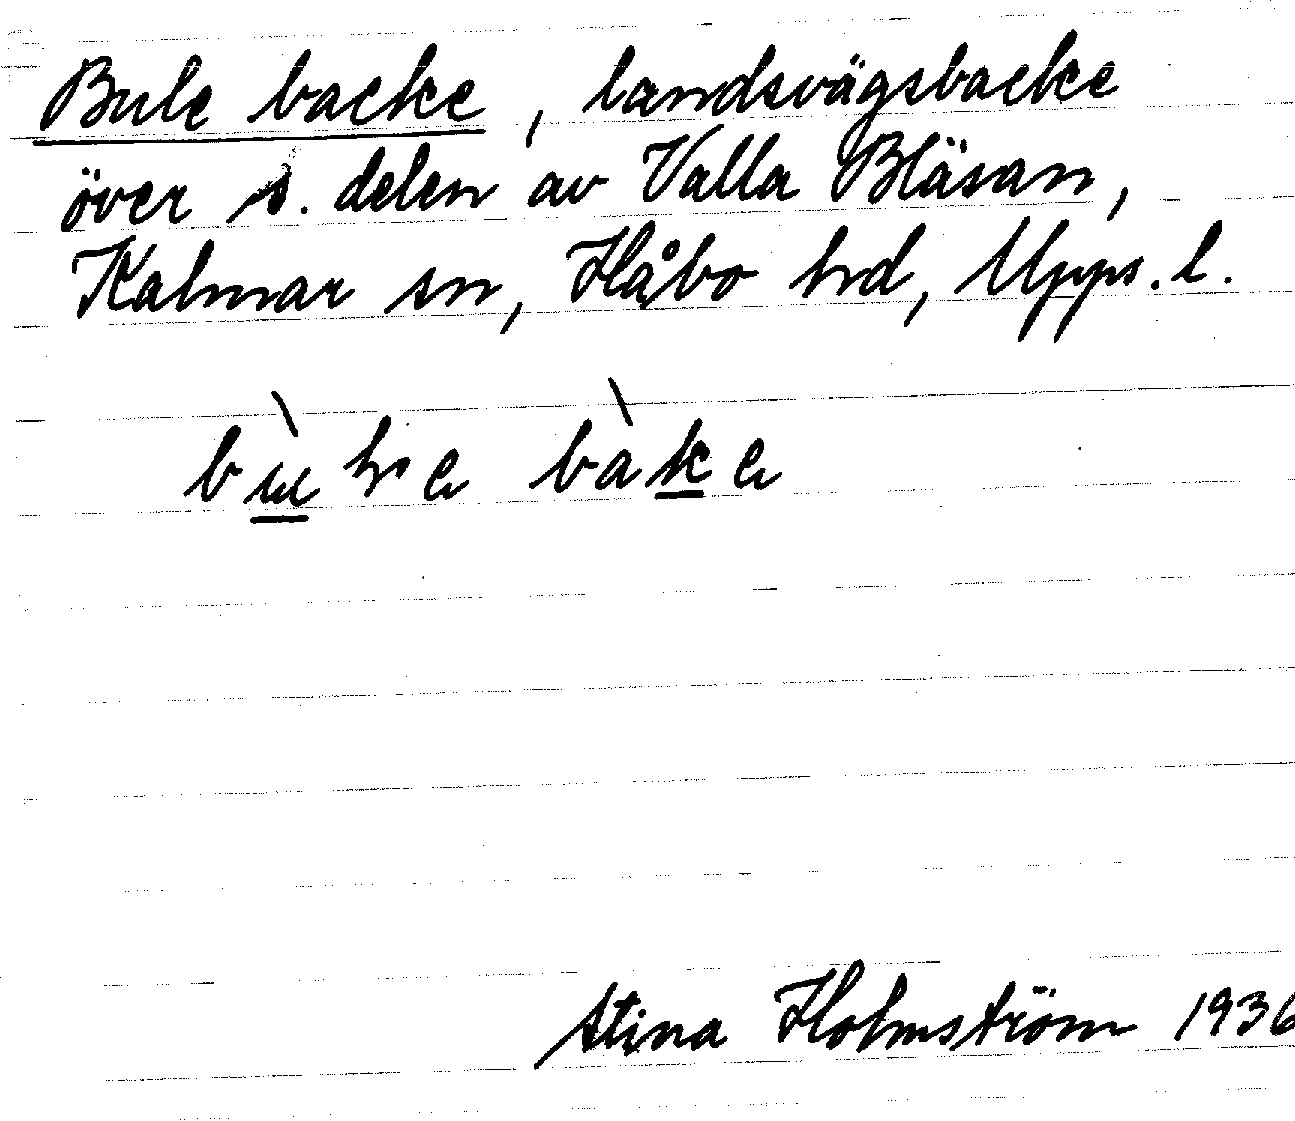 Bule backe, landsvägsbacke
över s. delen av Valla Bläsan,
Kalmar sn, Håbo hd, Upps. l.
bàke
Stina Holmström 1936